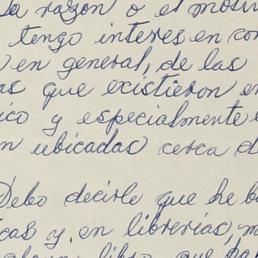 la razón o el motiv
tengo interes en con
en general, de las
as que existieron en
ico y especialmente e
n ubicadas cerca d
Debo decirle que he b
cas y en librerías, m
algun libro que ha